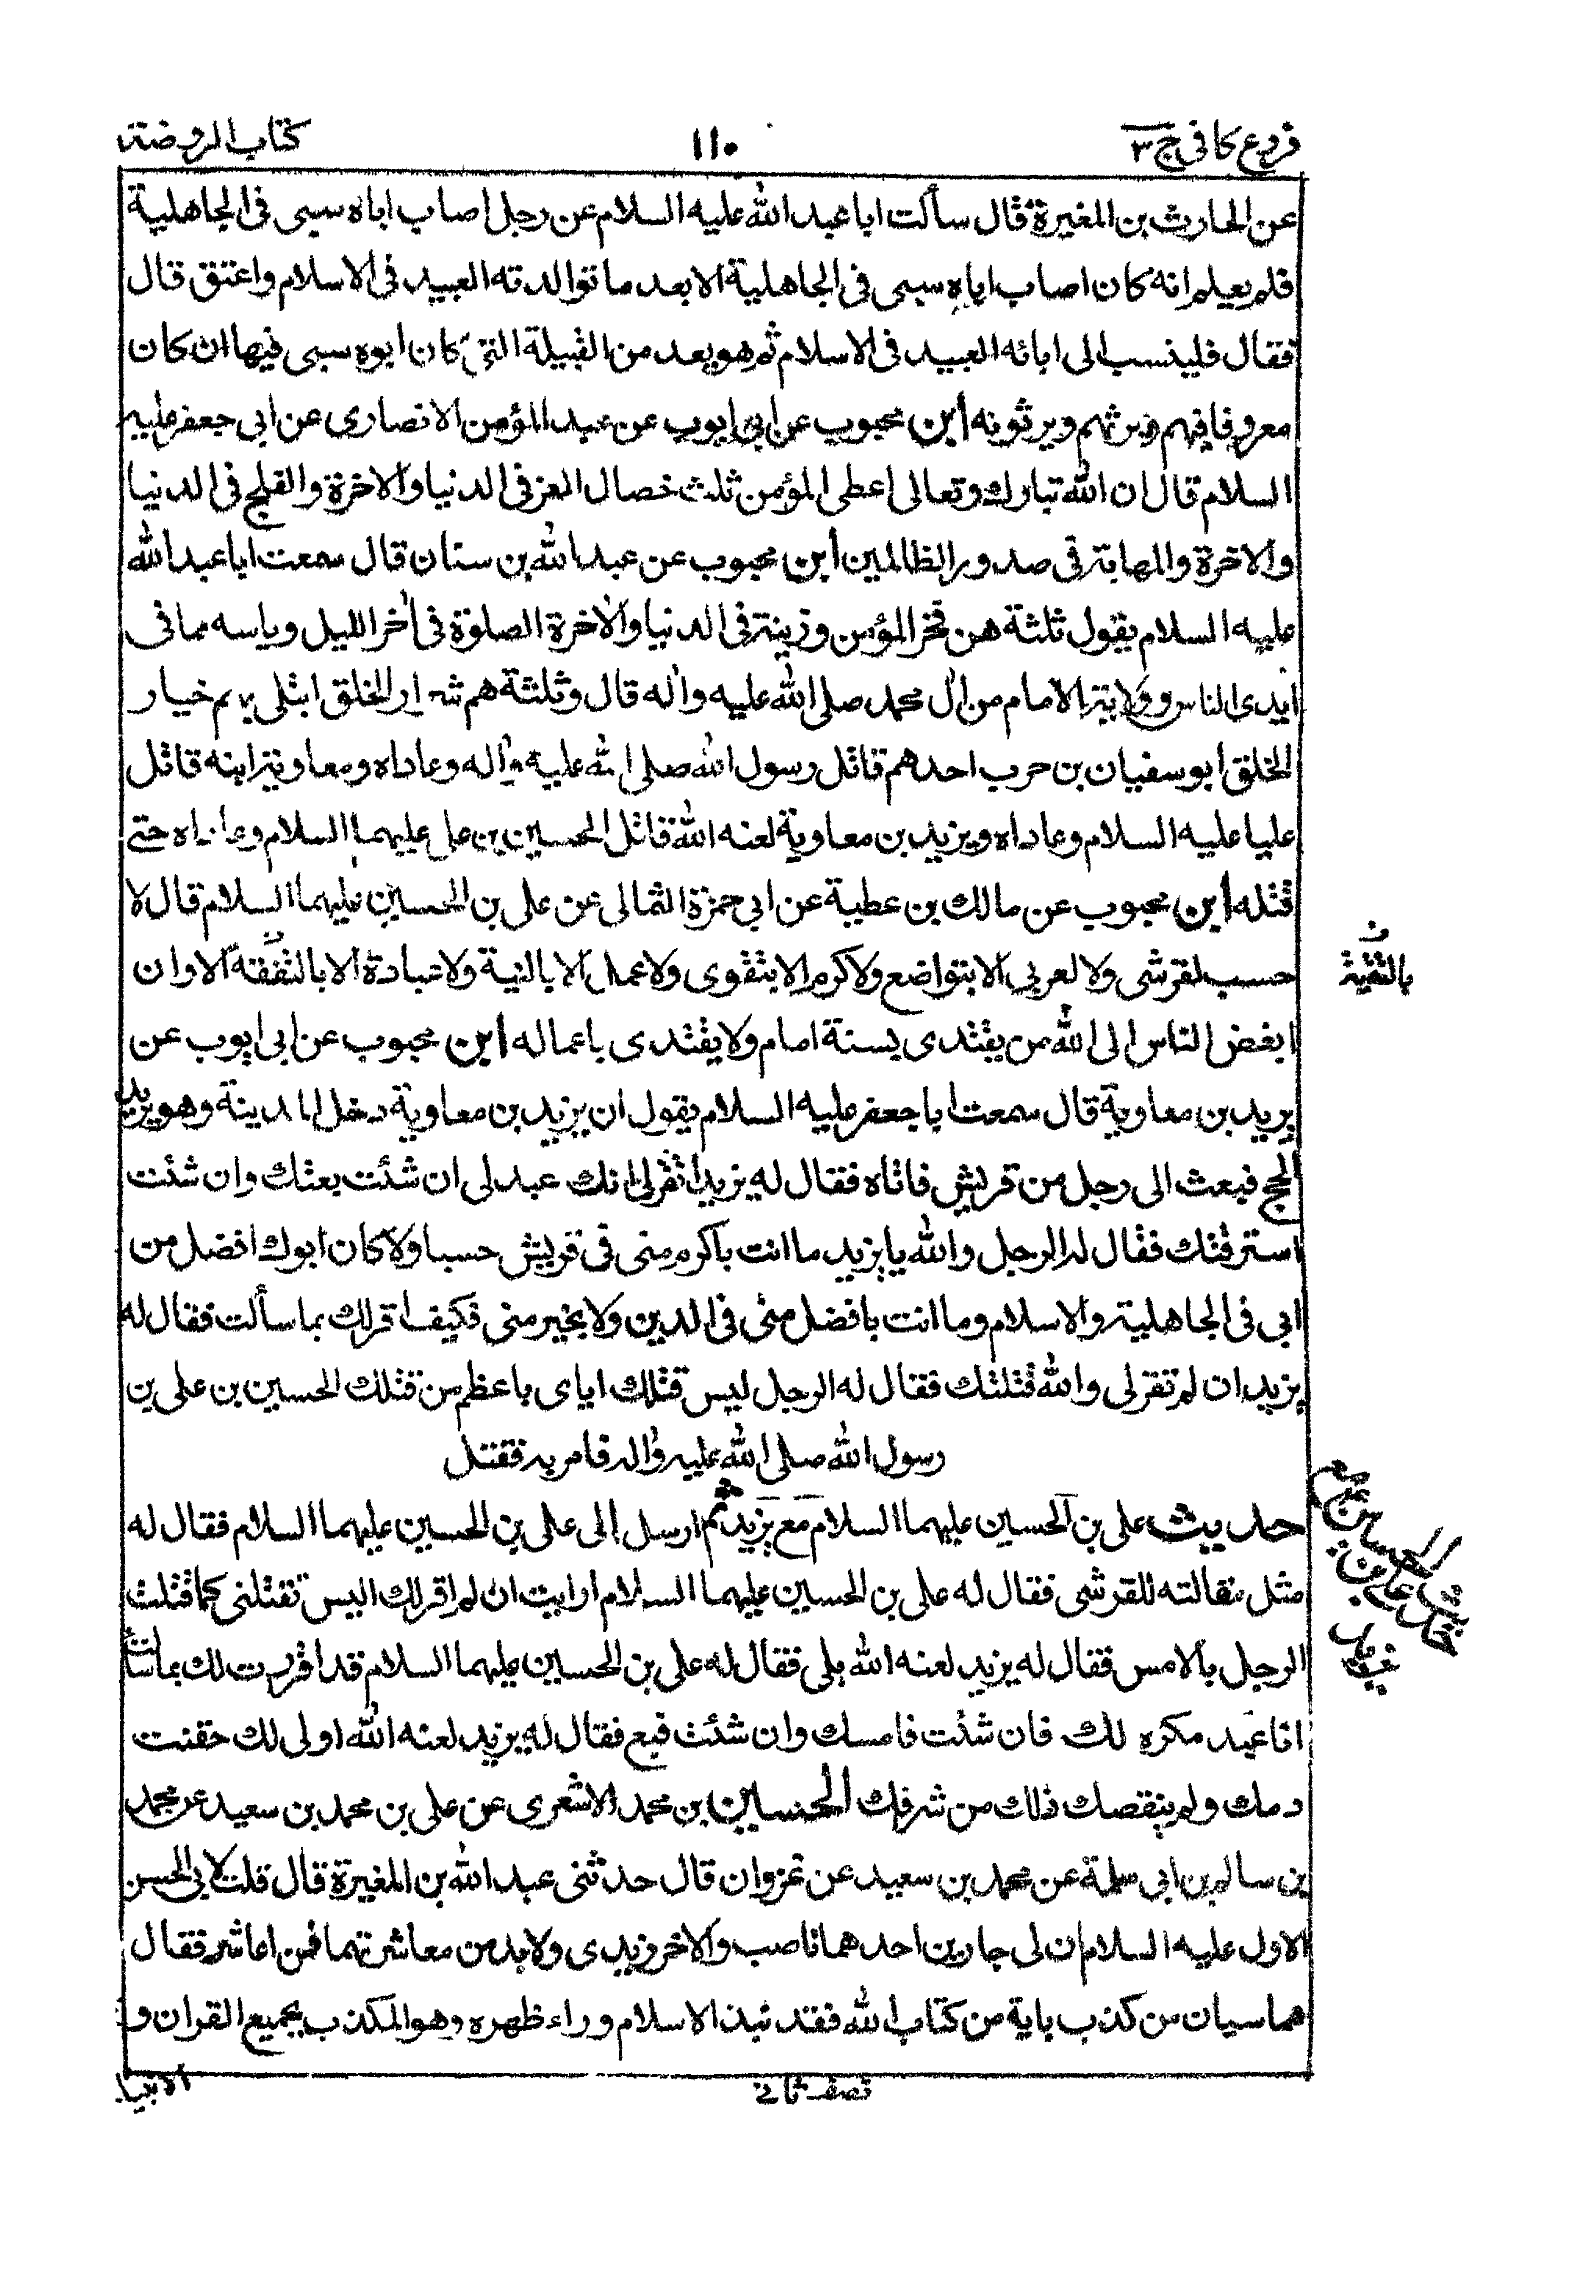 فروع كافى ج ٣
١١٠
كتاب الروضة
عن الحارث بن المغيرة قال سألت ابا عبد الله عليه السلام عن رجل اصاب اباه سبى فى الجاهلية
فلم يعلم انه كان اصاب اباه سبى فى الجاهلية الا بعد ما توالدته العبيد فى الاسلام واعتق قال
فقال فلينسب الى ابائه العبيد فى الاسلام ثم هو يعد من القبيلة التى كان ابوه سبى فيها ان كان
معروفا فيهم ويرثهم ويرثونه ابن محبوب عن ابى ايوب عن عبد المؤمن الانصارى عن ابى جعفر عليه
السلام قال ان الله تبارك وتعالى اعطى المؤمن ثلث خصال العز فى الدنيا والاخرة والفلج فى الدنيا
والاخرة والمهابة فى صدور الظالمين ابن محبوب عن عبد الله بن سنان قال سمعت ابا عبد الله
عليه السلام يقول ثلثة هن فخر المؤمن وزينة فى الدنيا والاخرة الصلوة فى اخر الليل وياسه مما فى
ايدى الناس وولاية الامام من ال محمد صلى الله عليه واله قال وثلثة هم شرار الخلق ابتلى بهم خيار
الخلق ابو سفيان بن حرب احدهم قاتل رسول الله صلى الله عليه واله وعاداه ومعاوية ابنه قاتل
عليا عليه السلام وعاداه ويزيد بن معاوية لعنه الله قاتل الحسين بن على عليهما السلام وعاداه حتى
قتله ابن محبوب عن مالك بن عطية عن ابى حمزة الثمالى عن على بن الحسين عليهما السلام قال لا
حسب لقرشى ولا لعربى الا بتواضع ولا كرم الا بتقوى ولا عمل الا بالنية ولا عبادة الا بالتفقه الا وان
بالتقية
ابغض الناس الى الله من يقتدى بسنة امام ولا يقتدى باعماله ابن محبوب عن ابى ايوب عن
بريد بن معاوية قال سمعت ابا جعفر عليه السلام يقول ان يزيد بن معاوية دخل المدينة وهو يريد
الحج فبعث الى رجل من قريش فاتاه فقال له يزيد اتقر لى انك عبد لى ان شئت بعتك وان شئت
استرقتك فقال له الرجل والله يا يزيد ما انت باكرم منى فى قريش حسبا ولا كان ابوك افضل من
ابى فى الجاهلية والاسلام وما انت بافضل منى فى الدين ولا بخير منى فكيف اقر لك بما سألت فقال له
يزيد ان لم تقر لى والله قتلتك فقال له الرجل ليس قتلك اياى باعظم من قتلك الحسين بن على بن
رسول الله صلى الله عليه واله فامر به فقتل
حديث على بن الحسين عليهما السلام مع يزيد ثم ارسل الى على بن الحسين عليهما السلام فقال له
مثل مقالته للقرشى فقال له على بن الحسين عليهما السلام ارايت ان لم اقر لك اليس تقتلنى كما قتلت
الرجل بالامس فقال له يزيد لعنه الله بلى فقال له على بن الحسين عليهما السلام قد اقررت لك بما سألت
انا عبد مكره لك فان شئت فامسك وان شئت فبع فقال له يزيد لعنه الله اولى لك حقنت
دمك ولم ينقصك ذلك من شرفك الحسين بن محمد الاشعرى عن على بن محمد بن سعيد عن محمد
بن سالم بن ابى سلمة عن محمد بن سعيد عن غزوان قال حدثنى عبد الله بن المغيرة قال قلت لابى الحسن
الاول عليه السلام ان لى جارين احدهما ناصب والاخر زيدى ولا بد من معاشرتهما فمن اعاشر فقال
هما سيان من كذب باية من كتاب الله فقد نبذ الاسلام وراء ظهره وهو المكذب بجميع القران و
نصف ثانى
الانبيا